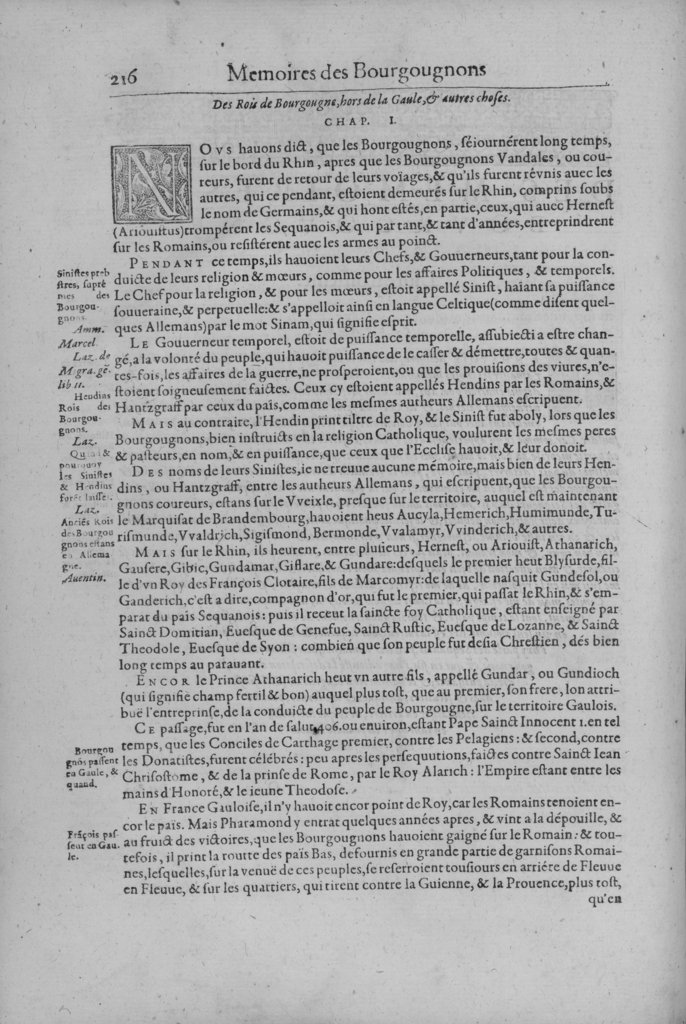 216
Memoires des Bourgougnons
Des Rois de Bourgougne, hors de la Gaule, & autres choses.
CHAP. I.
NOVS hauons dict, que les Bourgougnons, séiournérent long temps,
sur le bord du Rhin, apres que les Bourgougnons Vandales, ou cou-
reurs, furent de retour de leurs voïages, & qu'ils furent révnis auec les
autres, qui ce pendant, estoient demeurés sur le Rhin, comprins soubs
le nom de Germains, & qui hont estés, en partie, ceux, qui auec Hernest
(Ariouittus) trompérent les Sequanois, & qui par tant, & tant d'années, entreprindrent
sur les Romains, ou resistérent auec les armes au poinct.
PENDANT ce temps, ils hauoient leurs Chefs, & Gouuerneurs, tant pour la con-
duicte de leurs religion & mœurs, comme pour les affaires Politiques, & temporels.
Le Chef pour la religion, & pour les mœurs, estoit appellé Sinist, haïant sa puissance
souueraine, & perpetuelle: & s'appelloit ainsi en langue Celtique (comme disent quel-
ques Allemans) par le mot Sinam, qui signifie esprit.
LE Gouuerneur temporel, estoit de puissance temporelle, assubiecti a estre chan-
gé, a la volonté du peuple, qui hauoit puissance de le casser & démettre, toutes & quan-
tes-fois, les affaires de la guerre, ne prosperoient, ou que les prouisions des viures, n'e-
stoient soigneusement faictes. Ceux cy estoient appellés Hendins par les Romains, &
Hantzgraff par ceux du païs, comme les mesmes autheurs Allemans escripuent.
MAIS au contraire, l'Hendin print tiltre de Roy, & le Sinist fut aboly, lors que les
Bourgougnons, bien instruicts en la religion Catholique, voulurent les mesmes peres
& pasteurs, en nom, & en puissance, que ceux que l'Ecclise hauoit, & leur donoit.
DES noms de leurs Sinistes, ie ne treuue aucune mémoire, mais bien de leurs Hen-
dins, ou Hantzgraff, entre les autheurs Allemans, qui escripuent, que les Bourgou-
gnons coureurs, estans sur le Vveixle, presque sur le territoire, auquel est maintenant
le Marquisat de Brandembourg, hauoient heus Aucyla, Hemerich, Humimunde, Tu-
rismunde, Vvaldrich, Sigismond, Bermonde, Vvalamyr, Vvinderich, & autres.
MAIS sur le Rhin, ils heurent, entre plusieurs, Hernest, ou Ariouist, Athanarich,
Gausere, Gibic, Gundamar, Gislare, & Gundare: desquels le premier heut Blysurde, fil-
le d'vn Roy des François Clotaire, fils de Marcomyr: de laquelle nasquit Gundesol, ou
Ganderich, c'est a dire, compagnon d'or, qui fut le premier, qui passat le Rhin, & s'em-
parat du païs Sequanois: puis il receut la saincte foy Catholique, estant enseigné par
Sainct Domitian, Euesque de Geneſue, Sainct Rustic, Euesque de Lozanne, & Sainct
Theodole, Euesque de Syon: combien que son peuple fut desia Chrestien, dés bien
long temps au parauant.
ENCOR le Prince Athanarich heut vn autre fils, appellé Gundar, ou Gundioch
(qui signifie champ fertil & bon) auquel plus tost, que au premier, son frere, lon attri-
buë l'entreprinse, de la conduicte du peuple de Bourgougne, sur le territoire Gaulois.
CE passage, fut en l'an de salut 406. ou enuiron, estant Pape Sainct Innocent 1. en tel
temps, que les Conciles de Carthage premier, contre les Pelagiens: & second, contre
les Donatistes, furent célébrés: peu apres les persequutions, faictes contre Sainct Iean
Chrisostome, & de la prinse de Rome, par le Roy Alarich: l'Empire estant entre les
mains d'Honoré, & le ieune Theodose.
EN France Gauloise, il n'y hauoit encor point de Roy, car les Romains tenoient en-
cor le païs. Mais Pharamond y entrat quelques années apres, & vint a la dépouille, &
au fruict des victoires, que les Bourgougnons hauoient gaigné sur le Romain: & tou-
tefois, il print la routte des païs Bas, defournis en grande partie de garnisons Romai-
nes, lesquelles, sur la venuë de ces peuples, se reserroient tousiours en arriére de Fleuue
en Fleuue, & sur les quartiers, qui tirent contre la Guienne, & la Prouence, plus tost,
qu'en
Sinistes preb
stres, supré
mes des
Bourgou-
gnons.
Amm.
Marcel.
Laz. de
M gra. gē.
lib 11.
Hendins
Rois des
Bourgou-
gnons.
Laz.
Quāt &
pourquoy
les Sinistes
& Hendins
Laz.
Anciés Rois
des Bourgou
gnons estans
en Allema
gne.
Auentin.
Bourgou
gnōs passent
en Gaule, &
quand.
Frāçois pas-
sent en Gau
le.